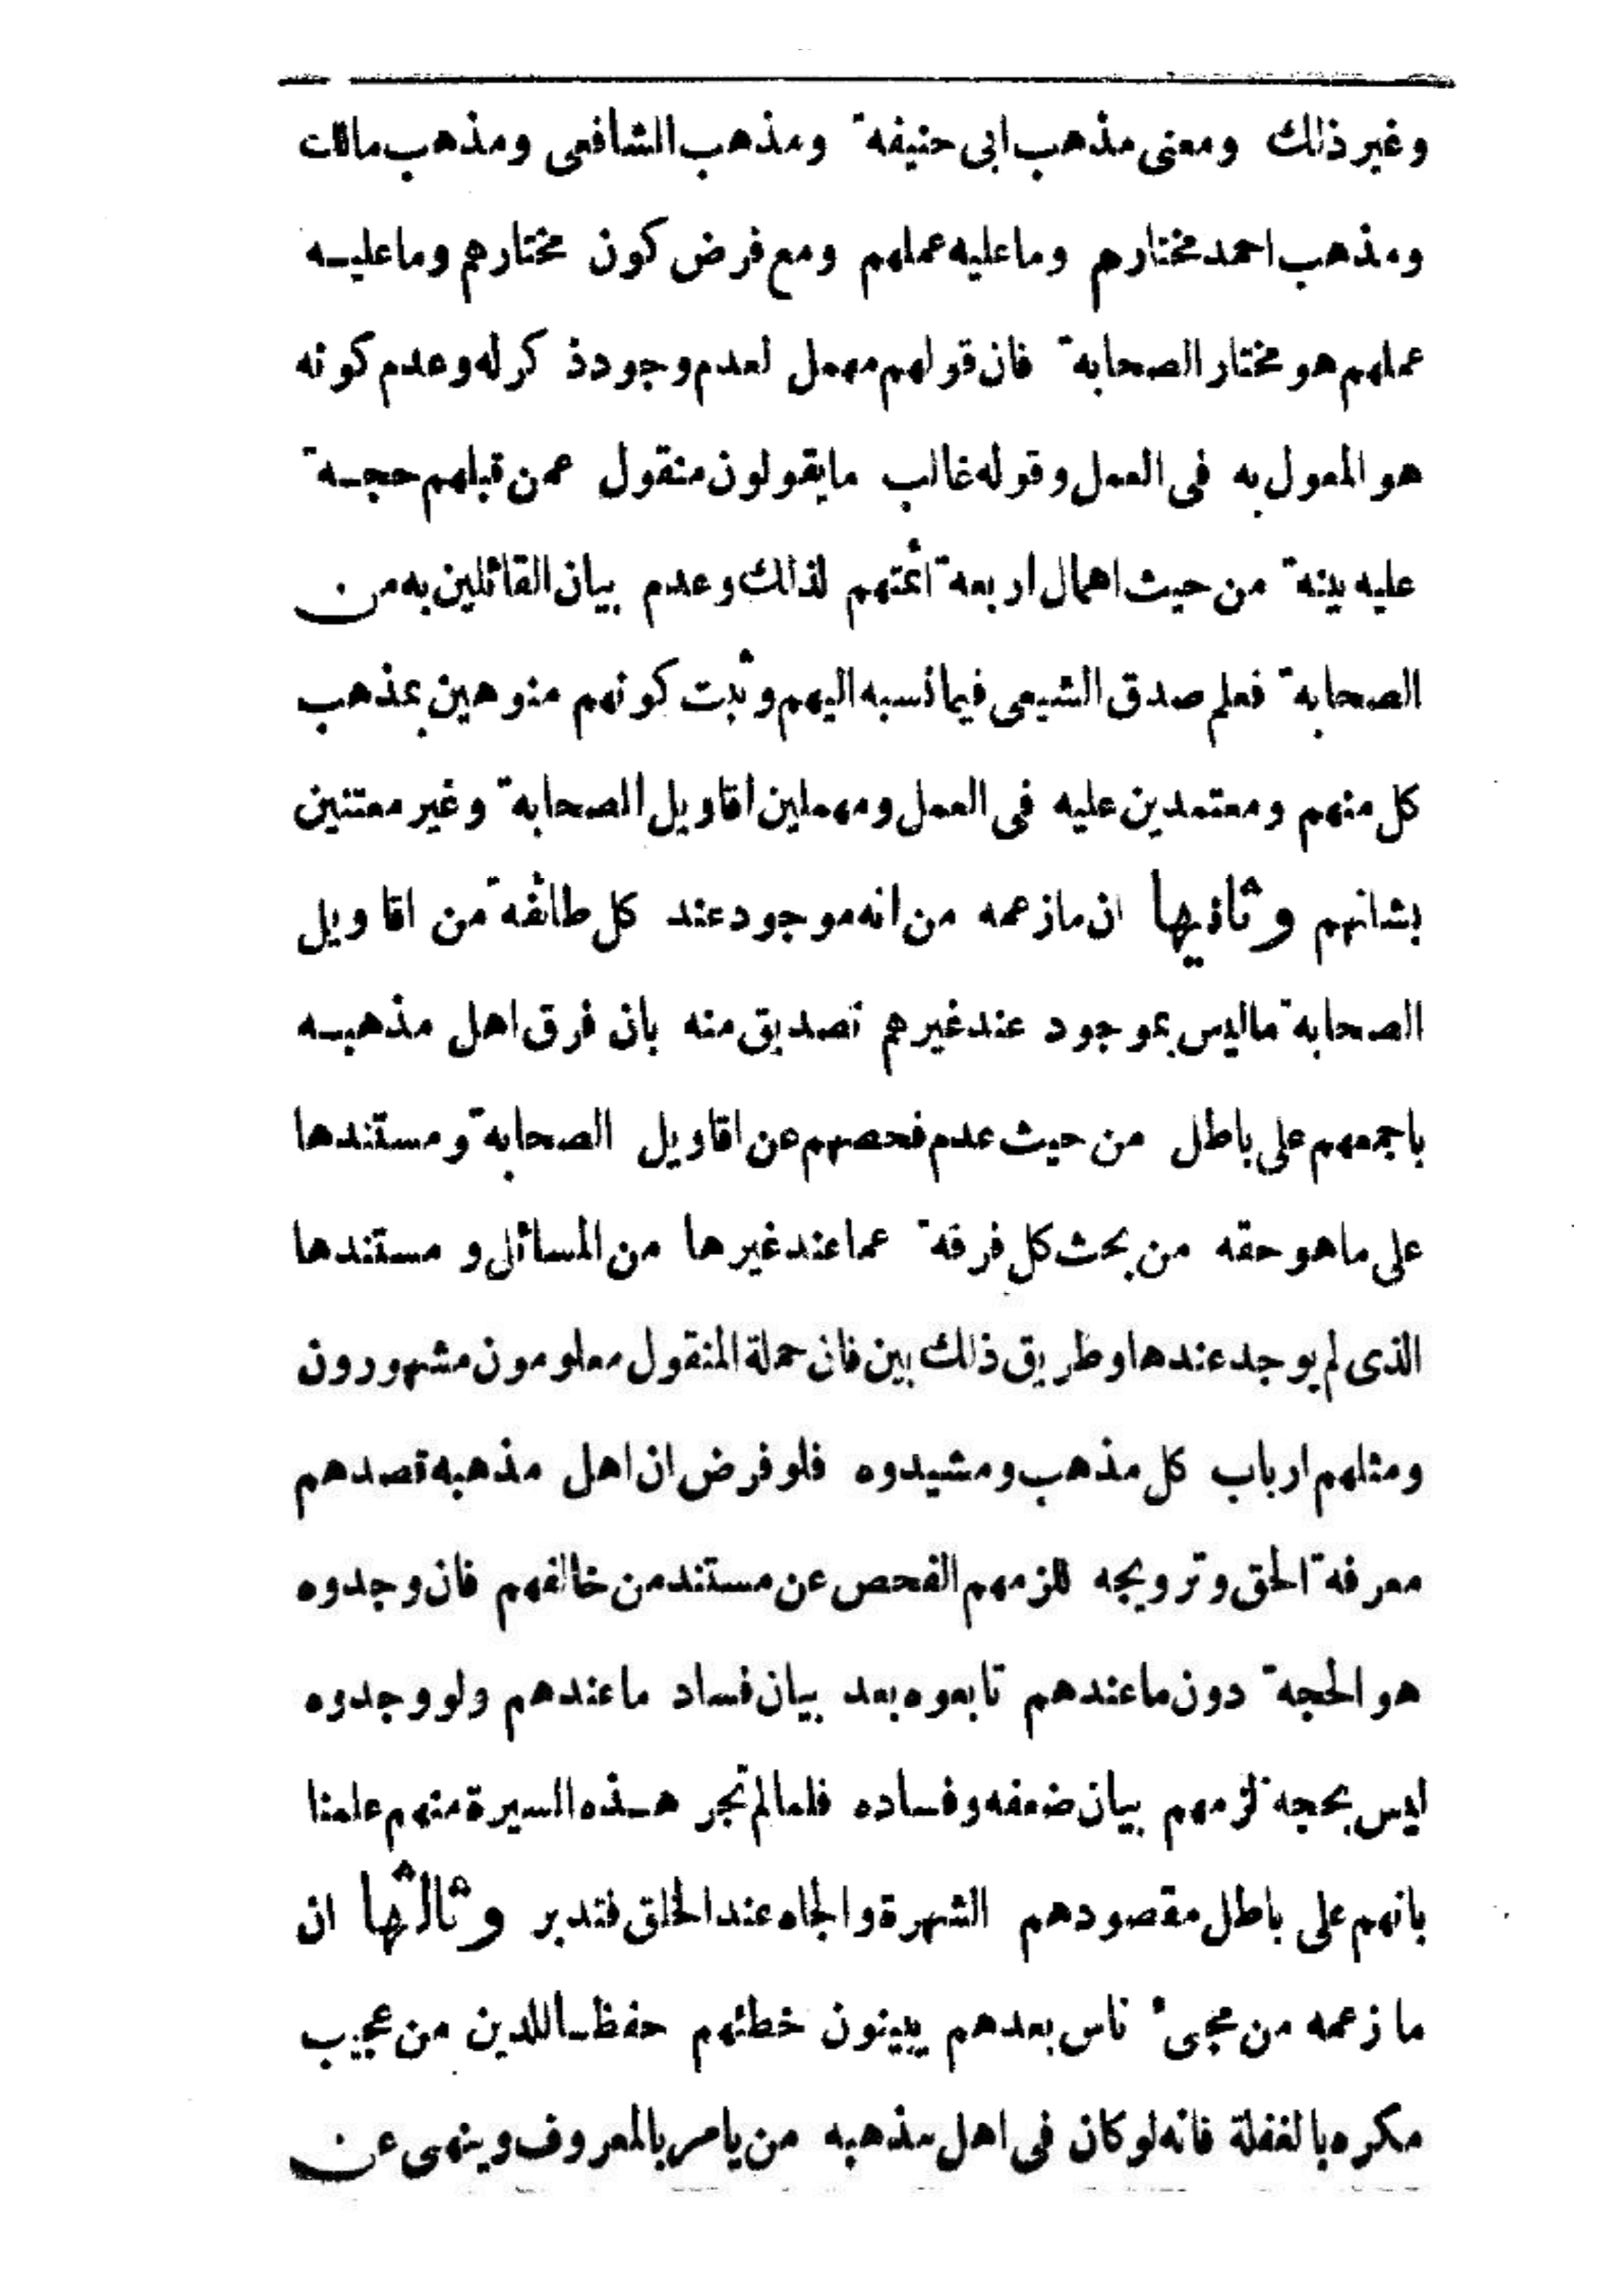 وغير ذلك ومعنى مذهب ابى حنيفة ومذهب الشافعى ومذهب مالك
ومذهب احمد مختارهم وما عليه عملهم ومع فرض كون مختارهم وما عليه
عملهم هو مختار الصحابة فان قولهم مهمل لعدم وجود ذكر له وعدم كونه
هو المعول به فى العمل وقوله غالب ما يقولون منقول عمن قبلهم حجة
عليه بينة من حيث اهمال اربعة ائمتهم لذلك وعدم بيان القائلين به من
الصحابة فعلم صدق الشيعى فيما نسبه اليهم وثبت كونهم منوهين بمذهب
كل منهم ومعتمدين عليه فى العمل ومهملين اقاويل الصحابة وغير معتنين
بشانهم وثانيها ان ما زعمه من انه موجود عند كل طائفة من اقاويل
الصحابة ما ليس بموجود عند غيرهم تصديق منه بان فرق اهل مذهبه
باجمعهم على باطل من حيث عدم فحصهم عن اقاويل الصحابة ومستندها
على ما هو حقه من بحث كل فرقة عما عند غيرها من المسائل و مستندها
الذى لم يوجد عندها وطريق ذلك بين فان حملة المنقول معلومون مشهورون
ومثلهم ارباب كل مذهب ومشيدوه فلو فرض ان اهل مذهبه قصدهم
معرفة الحق وترويجه للزمهم الفحص عن مستند من خالفهم فان وجدوه
هو الحجة دون ما عندهم تابعوه بعد بيان فساد ما عندهم ولو وجدوه
ليس بحجة لزمهم بيان ضعفه وفساده فلما لم تجر هذه السيرة منهم علمنا
بانهم على باطل مقصودهم الشهرة والجاه عند الخلق فتدبر وثالثها ان
ما زعمه من مجىء ناس بعدهم يبينون خطئهم حفظا للدين من عجيب
مكره بالغفلة فانه لو كان فى اهل مذهبه من يامر بالمعروف وينهى عن